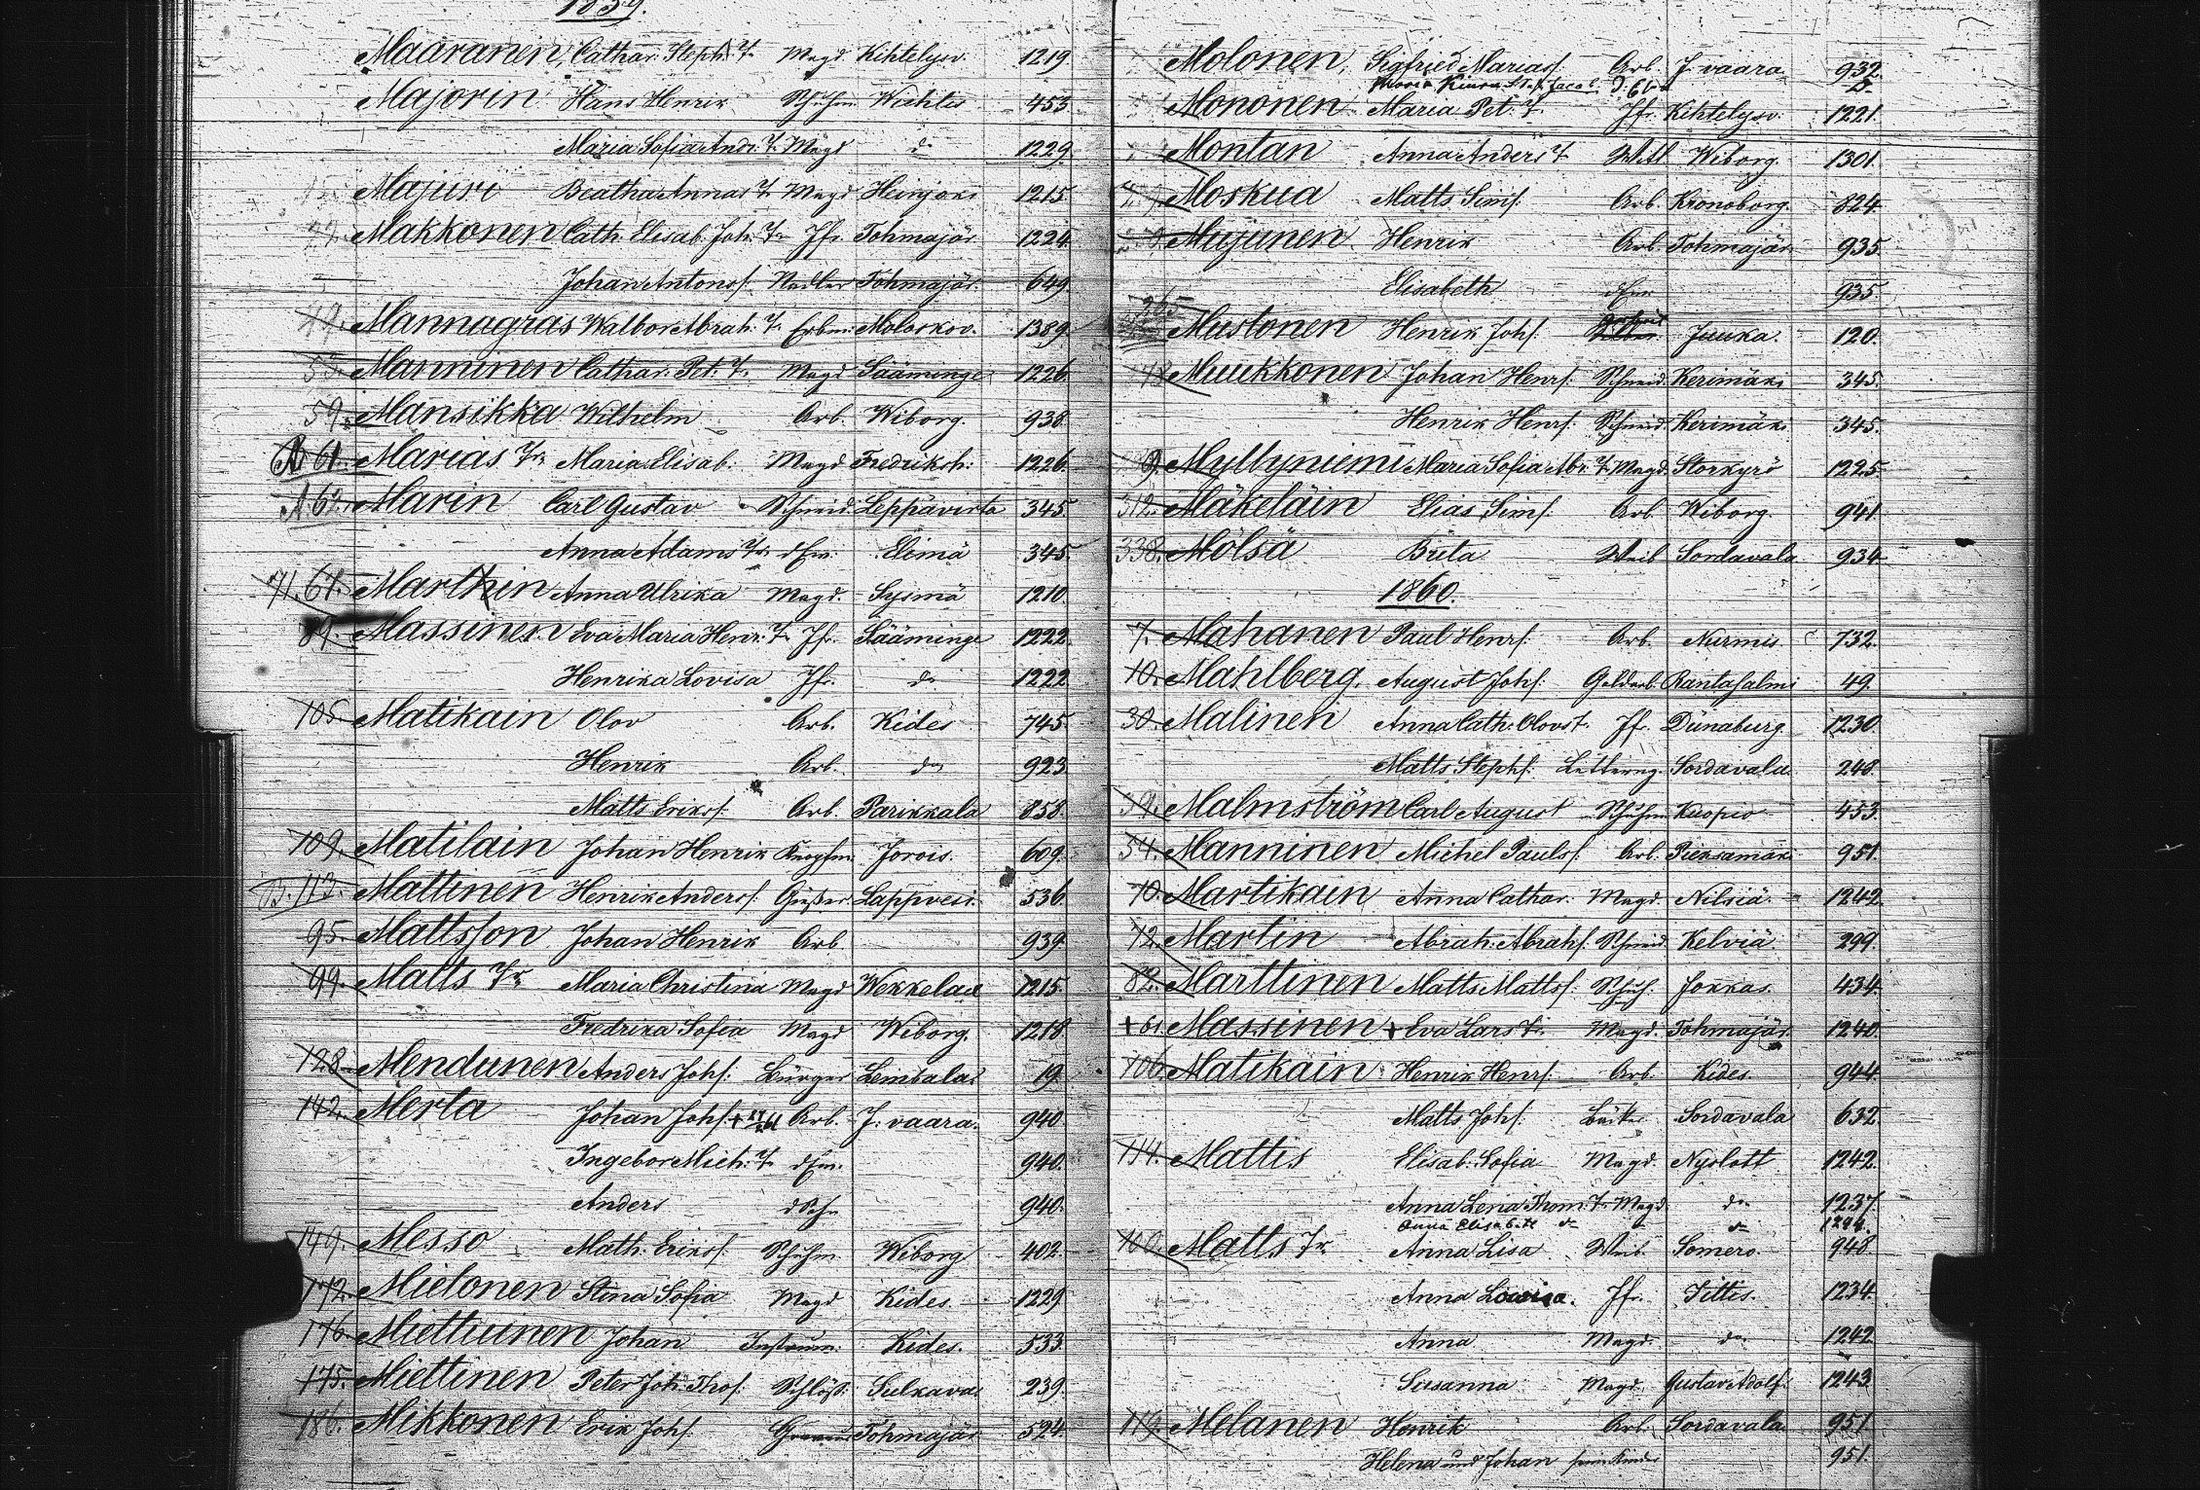 1859.
Maaranen, Cathar. Steph. T. Magd Kihtelysv. 1219
Majorin Hans Henrik Schuhm Wichtis 453
Maria Sofia Andr. T. Magd do 1229
Majuri Beatha Annas T. Magd Heinjoki 1215.
Makkonen Cath. Elisab. Joh. Tr Jfr. Tohmajär 1224.
Johan Antonss. Nadler Tohmajär. 649.
49. Mannagräs Walbor Abrah. T. Erbm. Moloskov. 1389.
53. Manninen Cathar. Pet. T. Magd Sääminge 1226.
59. Mansikka Wilhelm Arb. Wiborg. 938.
A 61. Marias Tr. Maria Elisab. Magd Fredriksh. 1226.
A. 62. Marin Carl Gustav Schneid. Leppävirta 345.
Anna Adams Tr. d Fr. Elimä 345.
71. 67. Marthin Anna Ulrika Magd. Sysmä 1210.
89. Massinen Eva Maria Henr. T. Jfr. Sääminge 1222.
Henrika Lovisa Jfr. do 1222.
105. Matikain Olov Arb. Kides 745.
Henrik Arb. do 923
Matts Erikss. Arb. Parikkala 858.
109. Matilain Johan Henrik Knopfm. Jorois. 609.
B. 113. Mattinen Henrik Anderss. Gießer Lappvesi. 536.
95. Mattsson Johan Henrik Arb. 939.
99. Matts Tr Maria Christina Magd Wekkelax 1215.
Fredrika Sofia Magd Wiborg. 1218
128. Mendunen Anders Johs. Bürger Lembala 19.
142. Merta Johan Johs. Arb. J. vaara. 940.
Ingebor Mich. T. d Fr. 940.
Anders d Sohn 940.
149. Messo Math. Erikss. Schuhm. Wiborg 402.
172. Mielonen Stina Sofia Magd Kides. 1229.
176. Miettuinen Johan Instrum. Kides. 533.
175. Miettinen Peter Joh. Thos. Schloß. Sulkava 239.
186. Mikkonen Erik Johs. Graveur Tohmajär 524.
Molonen, Sigfried Mariass. Arb. J. vaara 932.
Mononen Maria Pet. T. Jfr. Kihtelysv. 1221.
Montan Anna Anders T. Witt Wiborg. 1301.
Moskua Matts Sims. Arb. Kronoborg. 824.
Mujunen Henrik Arb. Tohmajär. 935.
Elisabeth d Fr 935.
265
Mustonen Henrik Johs. Juuka. 120.
Muukkonen Johan Henrs. Schneid. Kerimäki 345.
Henrik Henrs. Schneid. Kerimäki 345.
Myllyniemi Maria Sofia Abr. T. Magd. Storkyrö 1225.
312. Mäkeläin Elias Sims. Arb. Wiborg. 941.
338. Mölsä Brita Weib Sordavala 934.
1860.
7. Mahanen Paul Henrs. Arb. Nurmis. 732.
10. Mahlberg. August Johs. Goldarb. Rantasalmi 49.
30. Malinen Anna Cath. Olovs T. Jfr. Dünaburg. 1230.
Matts Stephs. Sordavala 248.
39. Malmström Carl August Schuhm Kuopio 453.
54. Manninen Michel Pauls. Arb. Pieksamäki 951.
70. Martikain Anna Cathar. Magd. Nilsiä. 1242.
72. Martin Abrah. Abrahs. Schneid. Kelviä. 299.
82. Marttinen Matts Mattss. Schuh. Jokkas. 434.
+ 61 Massinen + Eva Lars T. Magd. Tohmajär. 1240.
106. Matikain Henrik Henrs. Arb. Kides 944.
Matts Johs. Bäcker Sordavala 632.
114. Mattis Elisab. Sofia Magd. Nyslott 1242.
Anna Lena Thom. T. Magd. do 1237.
Anna Elisabeth do do 1244.
100. Matts Tr. Anna Lisa Weib. Somero. 948.
Anna Lowisa. Jfr. Sittis. 1234.
Anna Magd. do 1242.
Susanna Magd. Gustav Adolf. 1243.
119. Melanen Henrik Arb. Sordavala 951.
Helena und Johan seine Kinder 951.